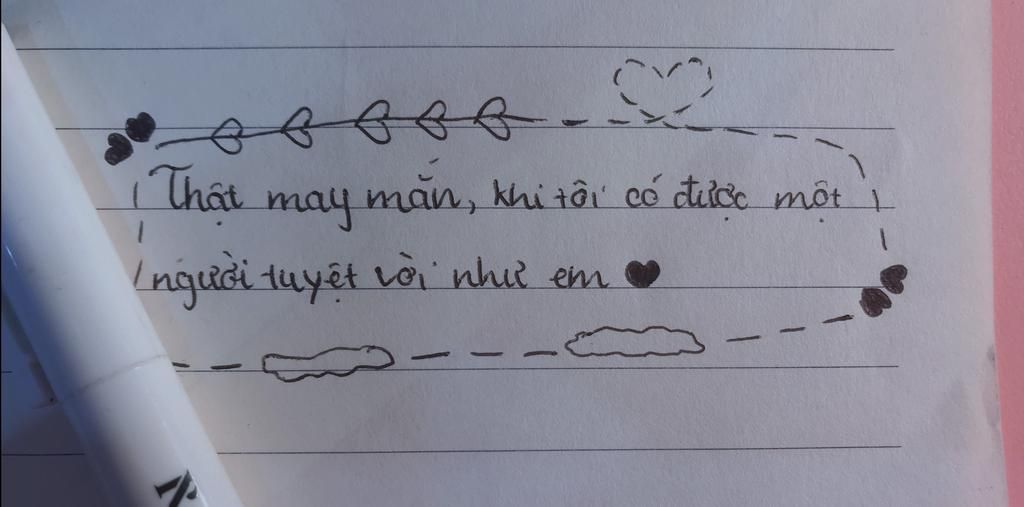 Thật may mắn, khi tôi có được một
người tuyệt vời như em